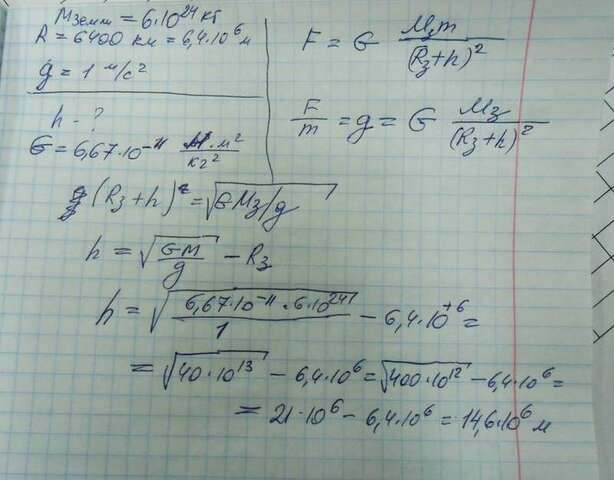 Mземли = 6·10²⁴ кг
R = 6400 км = 6,4·10⁶ м
g = 1 м/с²
h - ?
G = 6,67·10⁻¹¹ Н·м²/кг²
F = G Mзm/(Rз+h)²
F/m = g = G Mз/(Rз+h)²
(Rз+h) = √GMз/g
h = √(GM/g) - Rз
h = √(6,67·10⁻¹¹·6·10²⁴/1) - 6,4·10⁺⁶ =
= √40·10¹³ - 6,4·10⁶ = √400·10¹² - 6,4·10⁶ =
= 21·10⁶ - 6,4·10⁶ = 14,6·10⁶ м